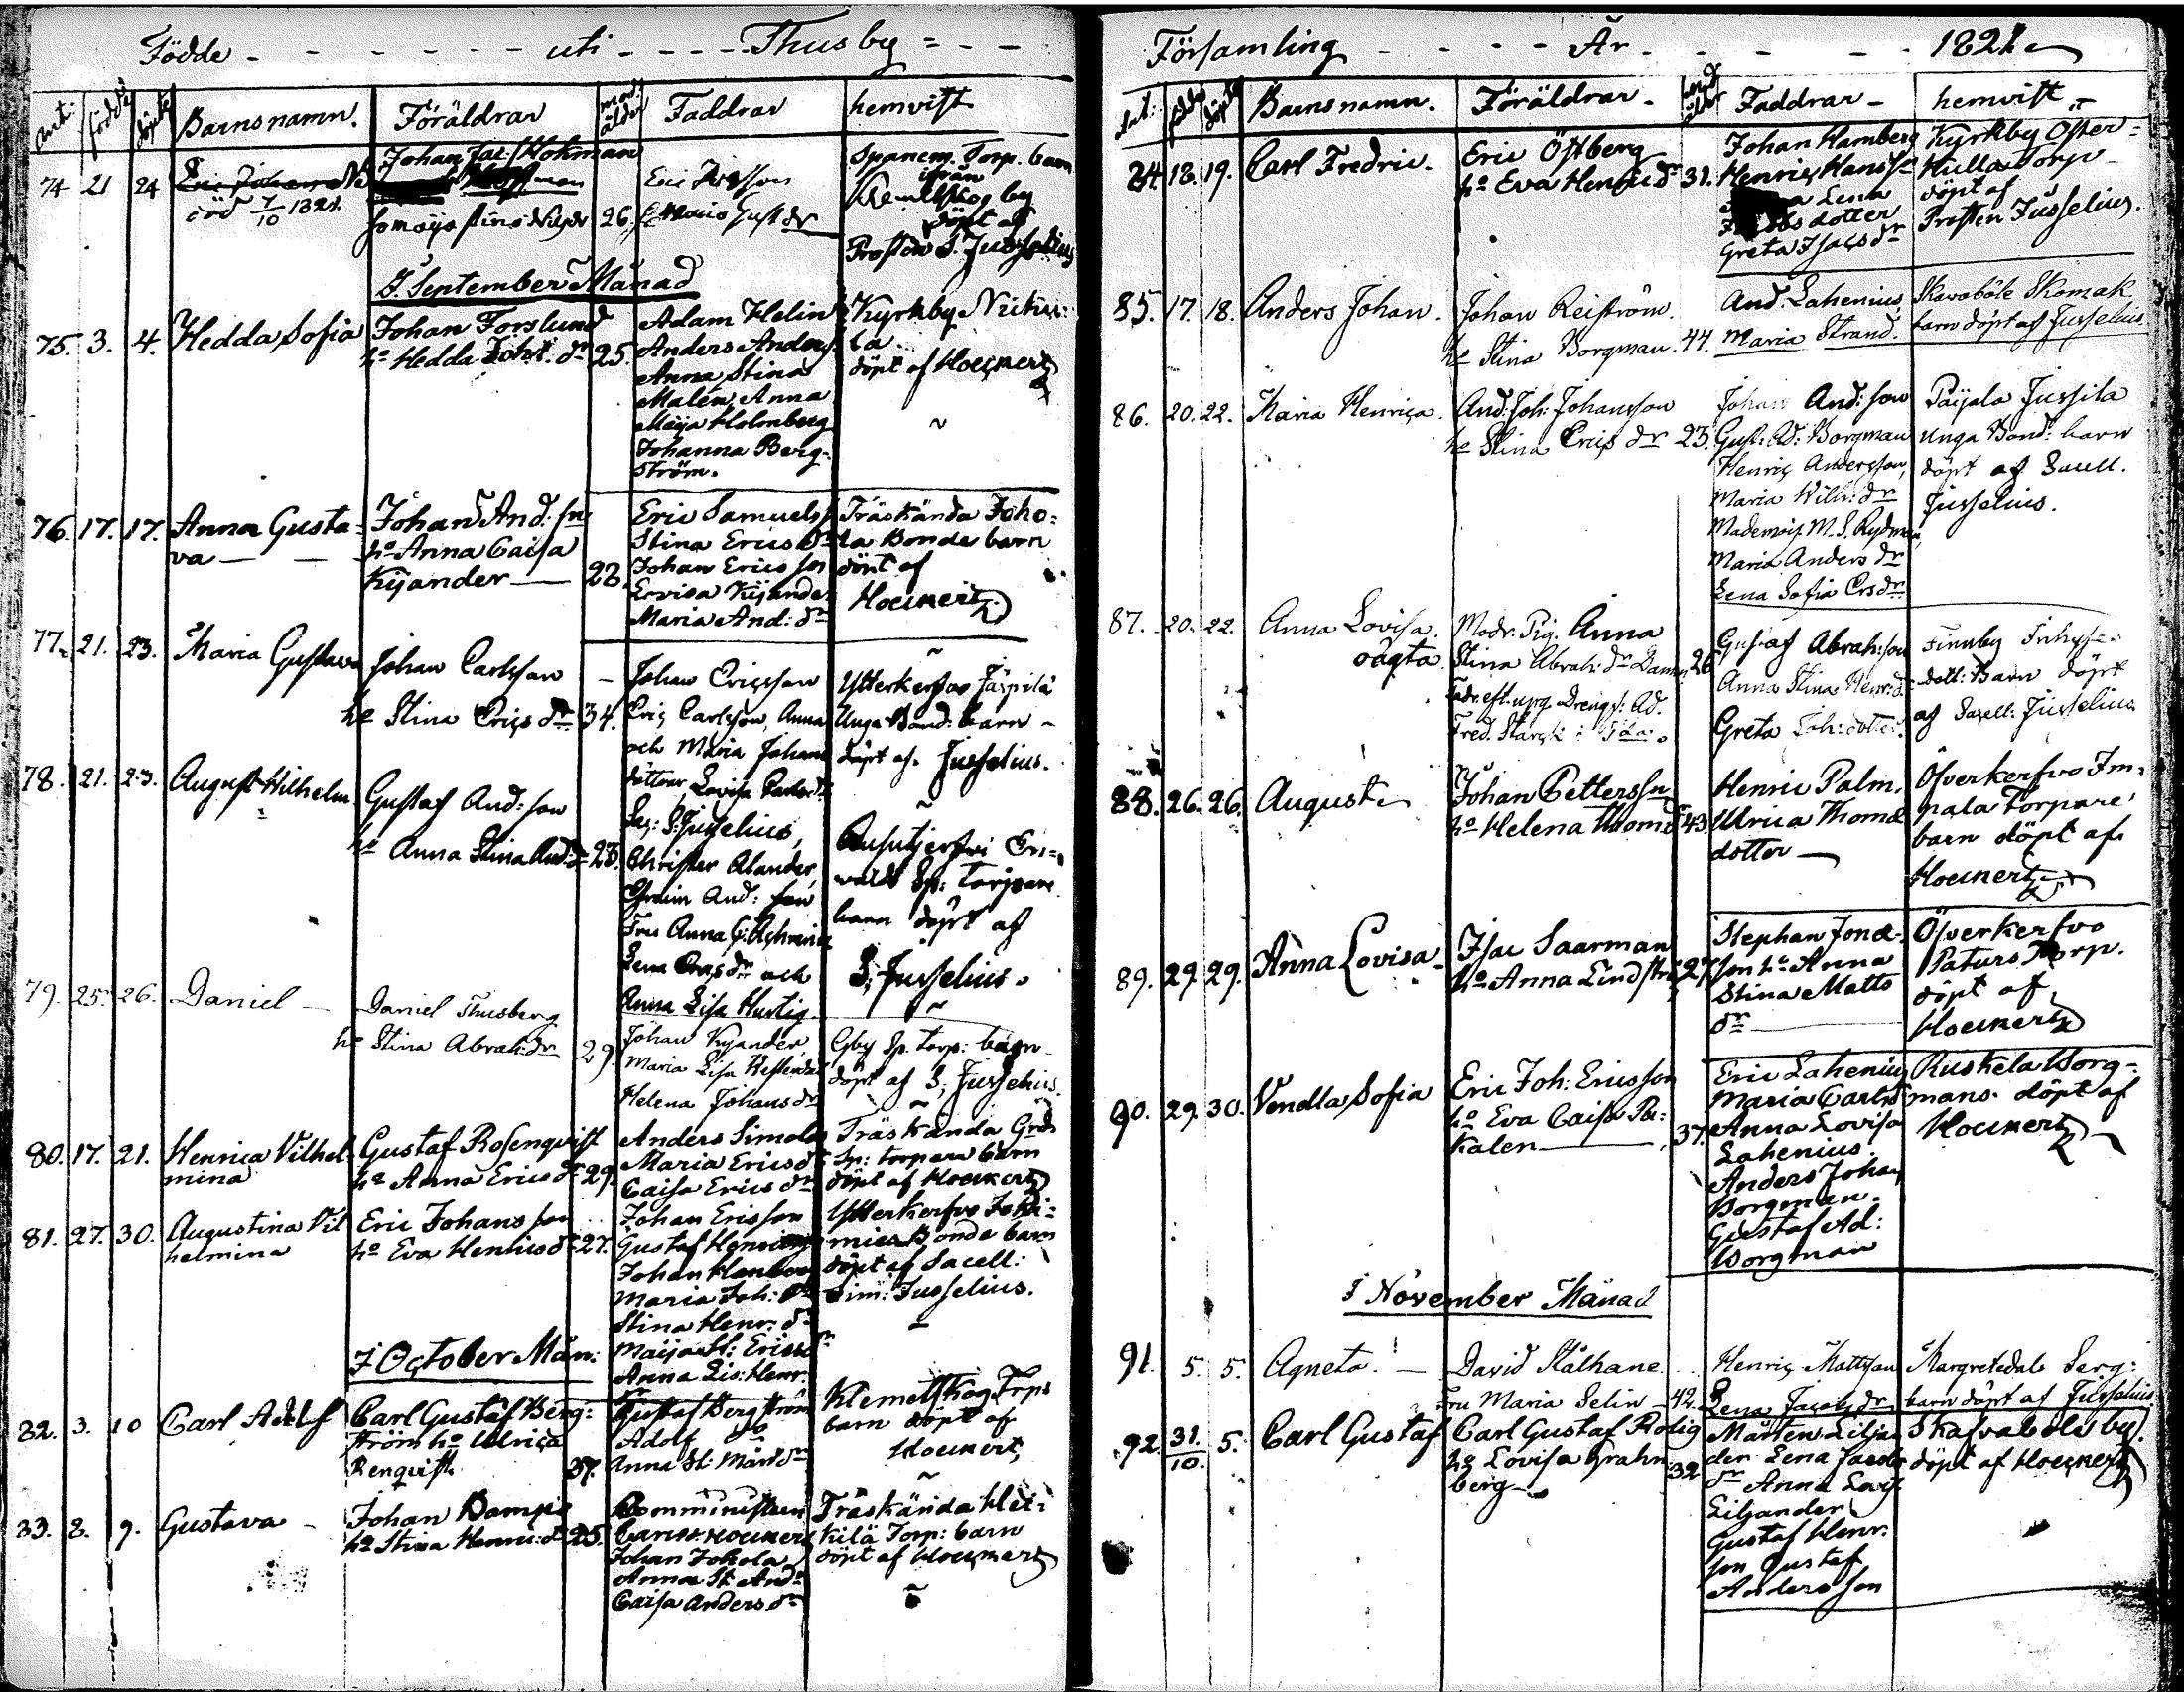 Födde - - - - - - uti - - - - Thusby = - -
Barnsnamn. Föräldrar Faddrar hemvist
74 21 24 Eric Johan
död 7/10 1821.
26
Eric
Spanem. Torp. barn
ifrån
Klemetskog by
döpt af
Prosten J. Jusselius
J. September Månad
75. 3. 4. Hedda Sofia Johan Forslund
ho Hedda Joh. dr 25.
Adam Helin
Anders Anders.
Anna Stina
Malén, Anna
Maija Holmberg
Johanna Berg-
ström.
Kyrkby
la.
döpt af Hoeckert
76. 17. 17. Anna Gusta-
va — —
Johan And. sn
ho Anna Caisa
Kijander — 28.
Eric Samuels
Stina Erics dr
Johan Erics son
Lovisa Kijander
Maria And: dr
Träskända Joho-
la Bonde barn
döpt af
Hoeckert
77. 21. 23. Maria Gustava
Johan Carlsson
ho Stina Erics dr 34.
Johan Ericsson
Eric Carlsson, Anna
och Maria Johans
döttrar Lovisa
Ytterkerfvo Järpilä
Unga Bond: barn -
döpt af. Jusselius.
78. 21. 23. August Wilhelm
Gustaf And: son
ho Anna Stina And: dr 28.
S. Jusselius,
Christer Alander,
Ephraim And: son
Fru Anna
Lena Ersdr och
Anna Lisa Hurtig.
Sp: Torpare
barn döpt af
S. Jusselius.
79. 25. 26. Daniel —
Daniel Thusberg
ho Stina Abrah: dr 29.
Johan Kijander,
Maria Lisa
Helena Johans dr
Gby Sp. torp: barn
döpt af S. Jusselius.
80. 17. 21. Henrica Vilhel-
mina
Gustaf Rosenqvist
ho Anna Erics dr 29.
Anders Simola
Maria Erics dr
Caisa Erics dr
Träskända
Sp: torpare barn
döpt af Hoeckert
81. 27. 30. Augustina Vil
helmina
Eric Johans son
ho Eva Henrics dr 27.
Johan Ericsson
Gustaf
Johan
Maria Joh: dr
Stina Henr. dr
Maija St: Erics
Anna Lis: Henr.
dr
Ytterkerfvo Joki-
mies Bonde barn
döpt af Sacell:
Sim: Jusselius.
J October Mån:
82. 3. 10 Carl Adolf
Carl Gustaf Berg-
ström ho Ulrica
Renqvist. 37.
Gustaf Bergström
Adolf do
Anna St: Mårt dr
Klemetskog Trp:
barn döpt af
Hoeckert,
83. 8. 9. Gustava -
Johan
ho Stina Henric: dr 25.
Comministern
Hoeckert
Johan Johola
Anna St. And:
Caisa Anders dr
Träskända Hei-
kilä Torp: barn
döpt af Hoeckert
Församling - - - - År - - - - 1821
Barnsnamn. Föräldrar - Faddrar - hemvist
84. 18. 19. Carl Fredric.
Eric Östberg
ho Eva Henric dr 31.
Johan Hamberg
Henric Hanss
Lena
dotter
Greta Isacs dr
Kyrkby Öster-
Hulla Torp
döpt af
Prosten Jusselius.
85. 17. 18. Anders Johan.
Johan Reiström.
ho Stina Borgman. 44.
And. Lahenius,
Maria Strand.
Skavaböle Skomak
barn döpt af Jusselius
86. 20. 22. Maria Henrica.
And: Joh: Johansson
ho Stina Erics dr 23.
Johan And: son
Gust: Ad: Borgman
Henric Andersson,
Maria Wilh: dr
Mademois. M. S. Rydman,
Maria Anders dr
Lena Sofia Ersdr
Paijala Jussila
Unga Bond: barn
döpt af Sacell.
Jusselius.
87. 20. 22. Anna Lovisa.
oägta.
Modr. Pig. Anna
Stina Abrah: dr 26
Fadr. eft. upg. Drengs: Ad.
Fred.
Gustaf Abrah: son
Anna Stina Henr: dr
Greta Joh: dotter.
Finnby Inhys-
dott: Barn döpt
af Sacell: Jusselius
88. 26. 26. August
Johan Pettersson
ho Helena Thoms dr 43
Henric Palm,
Ulrica Thoms
dotter —
Öfverkerfvo Im-
pala Torpare
barn döpt af
Hoeckert
89. 29. 29. Anna Lovisa
Isac Saarman
ho Anna Lindström 27.
Stephan Jona-
son ho Anna
Stina Matts
dr
Öfverkerfvo
Paturs Torp.
döpt af
Hoeckert
90. 29. 30. Vendla Sofia
Eric Joh: Ericsson
ho Eva Caisa Pa-
kalen 37.
Eric Lahenius
Maria Carls dr
Anna Lovisa
Lahenius.
Anders Johan
Borgman.
Gustaf Ad:
Borgman
Ruskela Borg-
mans. döpt af
Hoeckert
J November Månad
91. 5. 5. Agneta. —
David Stålhane
Fru Maria Selin - 42.
Henric Mattsson
Lena Jacobs dr
Margretedale Berg:
barn döpt af Jusselius
92. 31/10. 5. Carl Gustaf
Carl Gustaf Rolig
ho Lovisa Grahn-
berg 32
Mårten Liljan-
der Lena Jacobs
dr Anna Lovis.
Liljander
Gustaf Henr.
son Gustaf
Andersson
Skafvaböle by.
döpt af Hoeckert